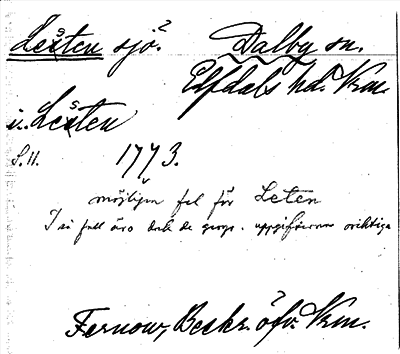 Lesten sjö.² Dalby sn.
Elfdals hd. Vrm.
i Lesten
S. 11. 1773.
möjligen fel för Leten
I så fall äro dock de geogr. uppgifterna oriktiga
Fernow, Beskr. öfv. Vrm.